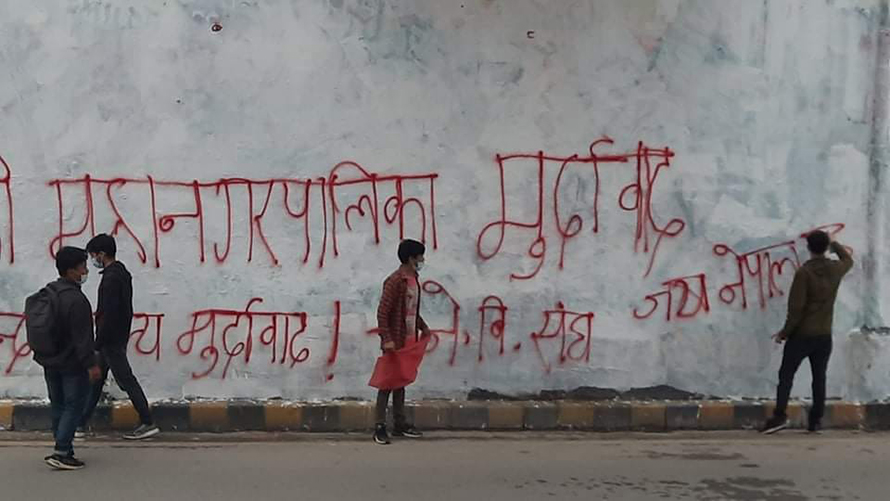 महानगरपालिका मुर्दावाद
मुर्दावाद! - ने. बि. संघ
जय नेपाल